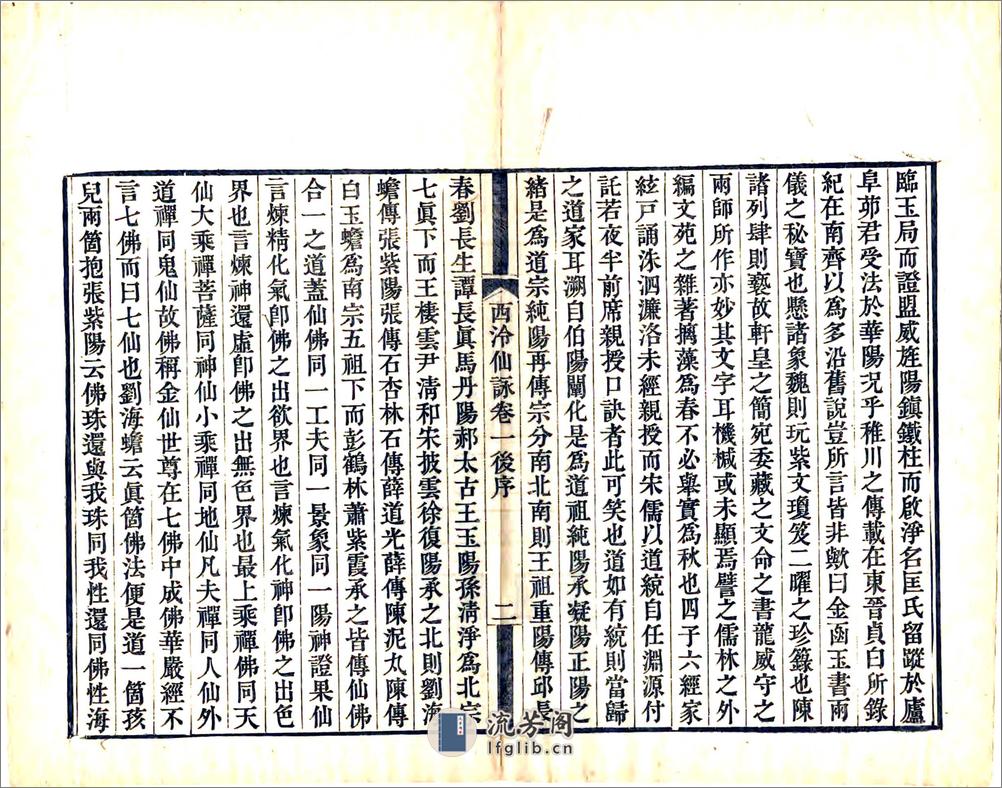 臨玉局而證盟威旌陽鎮鐵柱而啟淨名匡氏留蹤於廬
阜茆君受法於華陽況乎稚川之傳載在東晉貞白所錄
紀在南齊以為多沿舊說豈所言皆非歟曰金函玉書兩
儀之秘寶也懸諸象魏則玩紫文瓊笈二曜之珍籙也陳
諸列肆則褻故軒皇之簡宛委藏之文命之書龍威守之
兩師所作亦妙其文字耳機椷或未顯焉譬之儒林之外
編文苑之雜著摛藻為春不必舉實為秋也四子六經家
絃戸誦洙泗濂洛未經親授而宋儒以道統自任淵源付
託若夜半前席親授口訣者此可笑也道如有統則當歸
之道家耳溯自伯陽闡化是為道祖純陽承凝陽正陽之
緒是為道宗純陽再傳宗分南北南則王祖重陽傳邱長
西泠仙詠卷一後序
二
春劉長生譚長眞馬丹陽郝太古王玉陽孫清淨為北宗
七眞下而王棲雲尹清和宋披雲徐復陽承之北則劉海
蟾傳張紫陽張傳石杏林石傳薛道光薛傳陳泥丸陳傳
白玉蟾為南宗五祖下而彭鶴林蕭紫霞承之皆傳仙佛
合一之道蓋仙佛同一工夫同一景象同一陽神證果仙
言煉精化氣卽佛之出欲界也言煉氣化神卽佛之出色
界也言煉神還虛卽佛之出無色界也最上乘禪佛同天
仙大乘禪菩薩同神仙小乘禪同地仙凡夫禪同人仙外
道禪同鬼仙故佛稱金仙世尊在七佛中成佛華嚴經不
言七佛而曰七仙也劉海蟾云眞箇佛法便是道一箇孩
兒兩箇抱張紫陽云佛珠還與我珠同我性還同佛性海
流芳阁
lfglib.cn